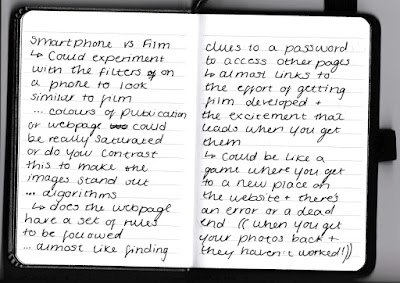 Smartphone vs Film
↳ Could experiment
with the filters on
a phone to look
similar to film
... colours of publication
or webpage could
be really saturated
or do you contrast
this to make the
images stand out
... algorithms
↳ does the webpage
have a set of rules
to be followed
... almost like finding
clues to a password
to access other pages
↳ almost links to
the effort of getting
film developed +
the excitement that
leads when you get
them
↳ could be like a
game where you get
to a new place on
the website + there's
an error or a dead
end (( when you get
your photos back +
they haven't worked!))